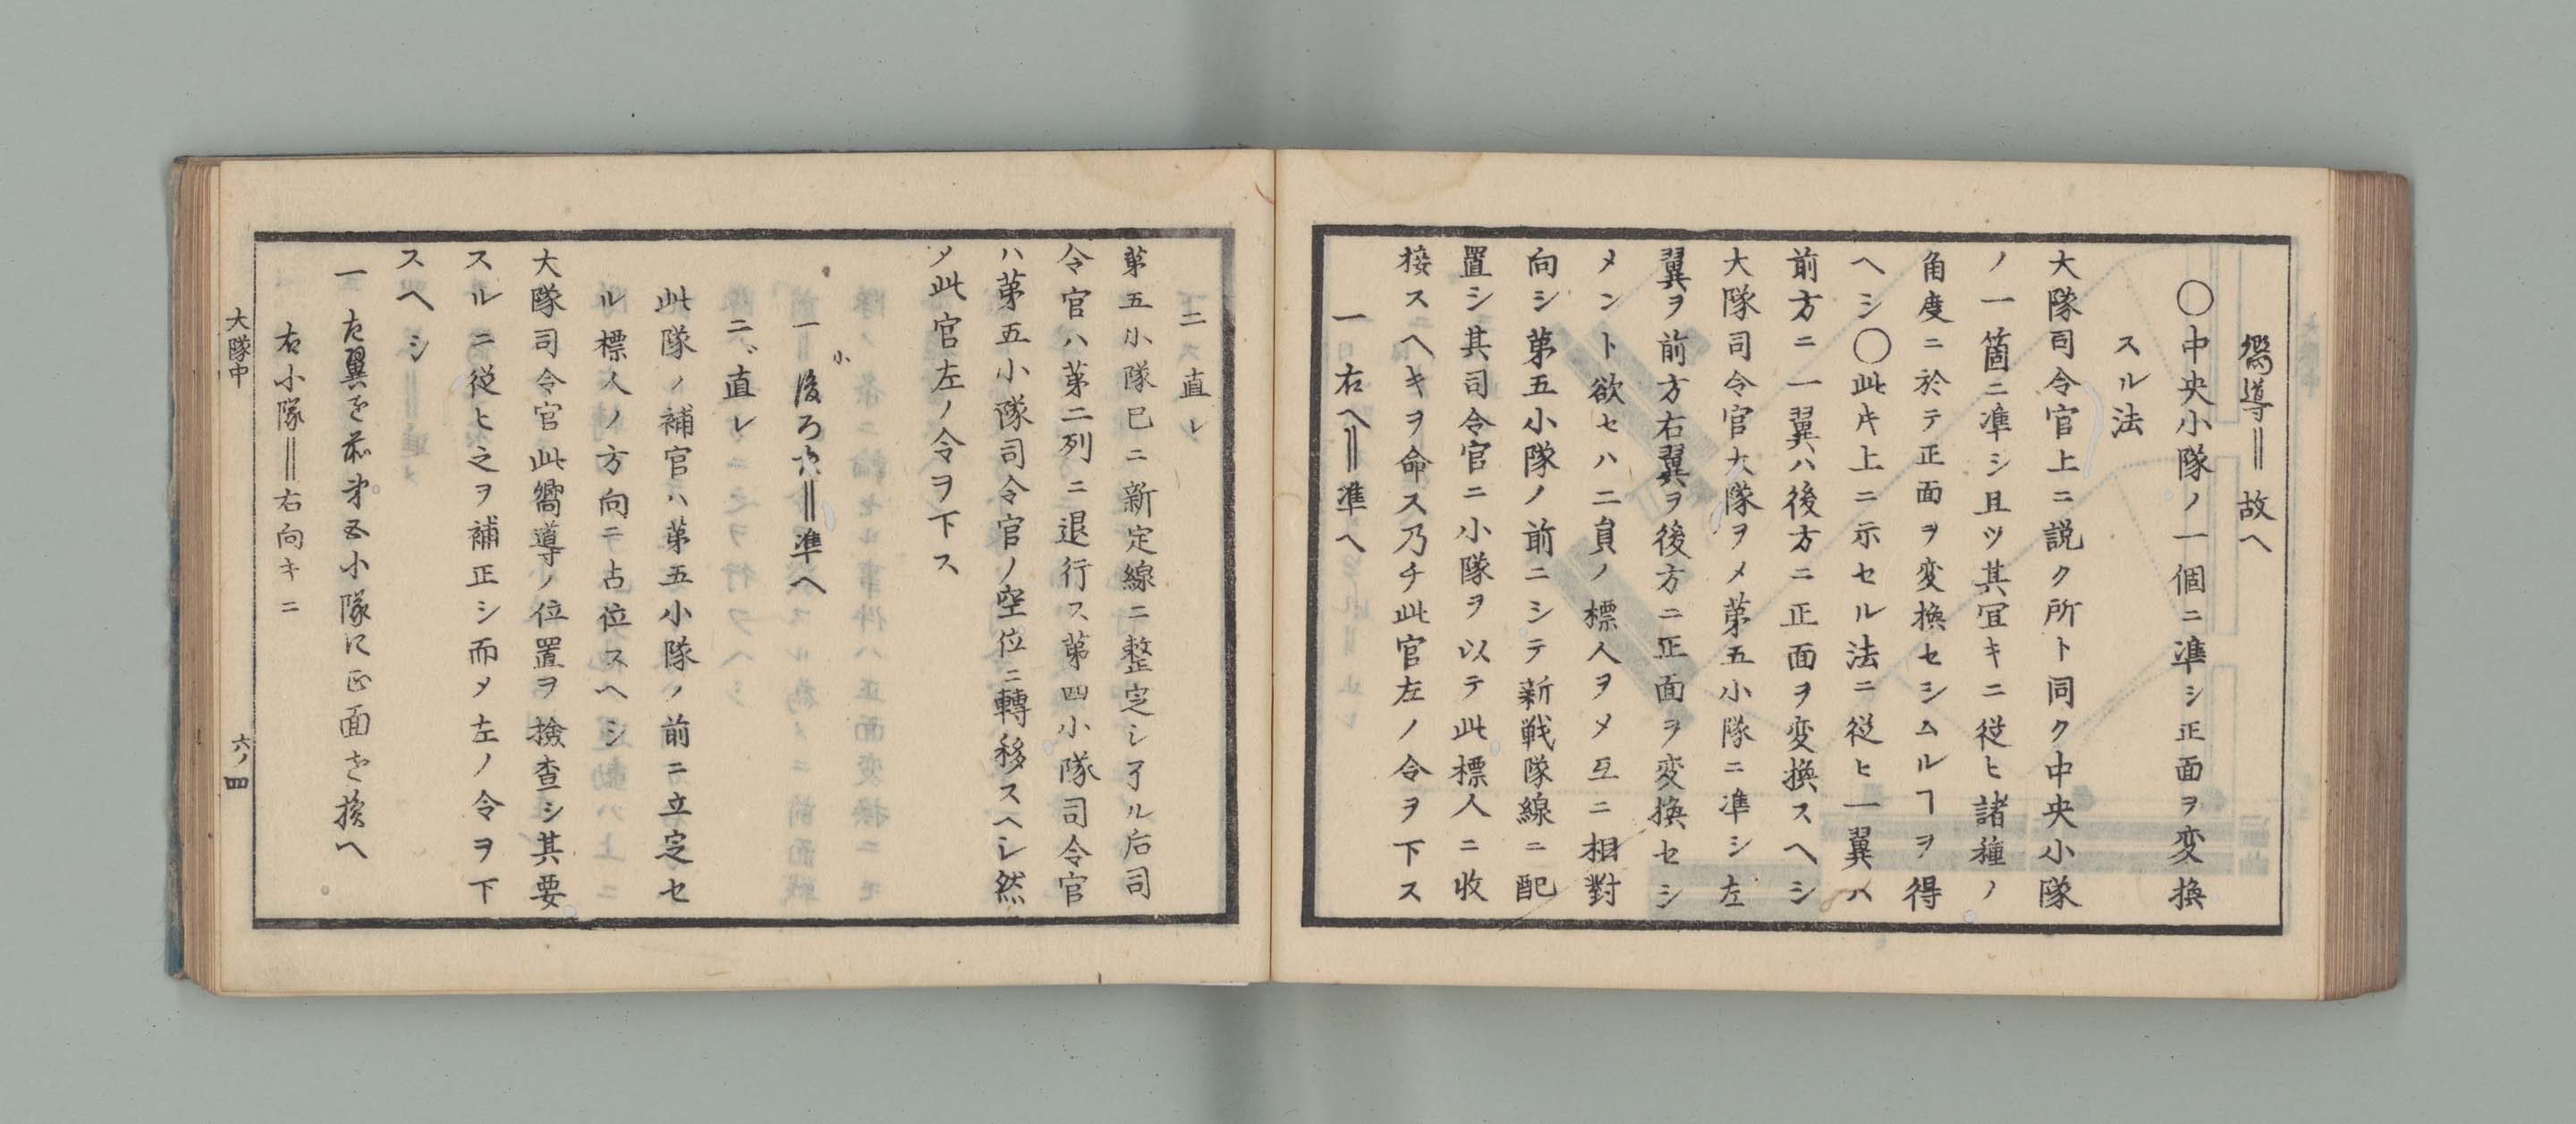 嚮導‖故ヘ
〇中央小隊ノ一個ニ準シ正面ヲ変換
スル法
大隊司令官上ニ説ク所ト同ク中央小隊
ノ一箇ニ準シ且ツ其宜キニ従ヒ諸種ノ
角度ニ於テ正面ヲ変換セシムルヿヲ得
ヘシ〇此片上ニ示セル法ニ従ヒ一翼ハ
前方ニ一翼ハ後方ニ正面ヲ変換スヘシ
大隊司令官大隊ヲメ第五小隊ニ準シ左
翼ヲ前方右翼ヲ後方ニ正面ヲ変換セシ
メント欲セハ二員ノ標人ヲメ互ニ相對
向シ第五小隊ノ前ニシテ新戦隊線ニ配
置シ其司令官ニ小隊ヲ以テ此標人ニ收
接スヘキヲ命ス乃チ此官左ノ令ヲ下ス
一右ヘ‖準ヘ
二直レ
第五小隊已ニ新定線ニ整定シ了ル后司
令官ハ第二列ニ退行ス第四小隊司令官
ハ第五小隊司令官ノ空位ニ轉移スヘシ然
メ此官左ノ令ヲ下ス
一後ろ小‖準ヘ
二直レ
此隊ノ補官ハ第五小隊ノ前ニ立定セ
ル標人ノ方向ニ占位スヘシ
大隊司令官此嚮導ノ位置ヲ撿査シ其要
スルニ従ヒ之ヲ補正シ而メ左ノ令ヲ下
スヘシ
一左翼を前第五小隊に正面を換へ
右小隊‖右向キニ
大隊中
六ノ四